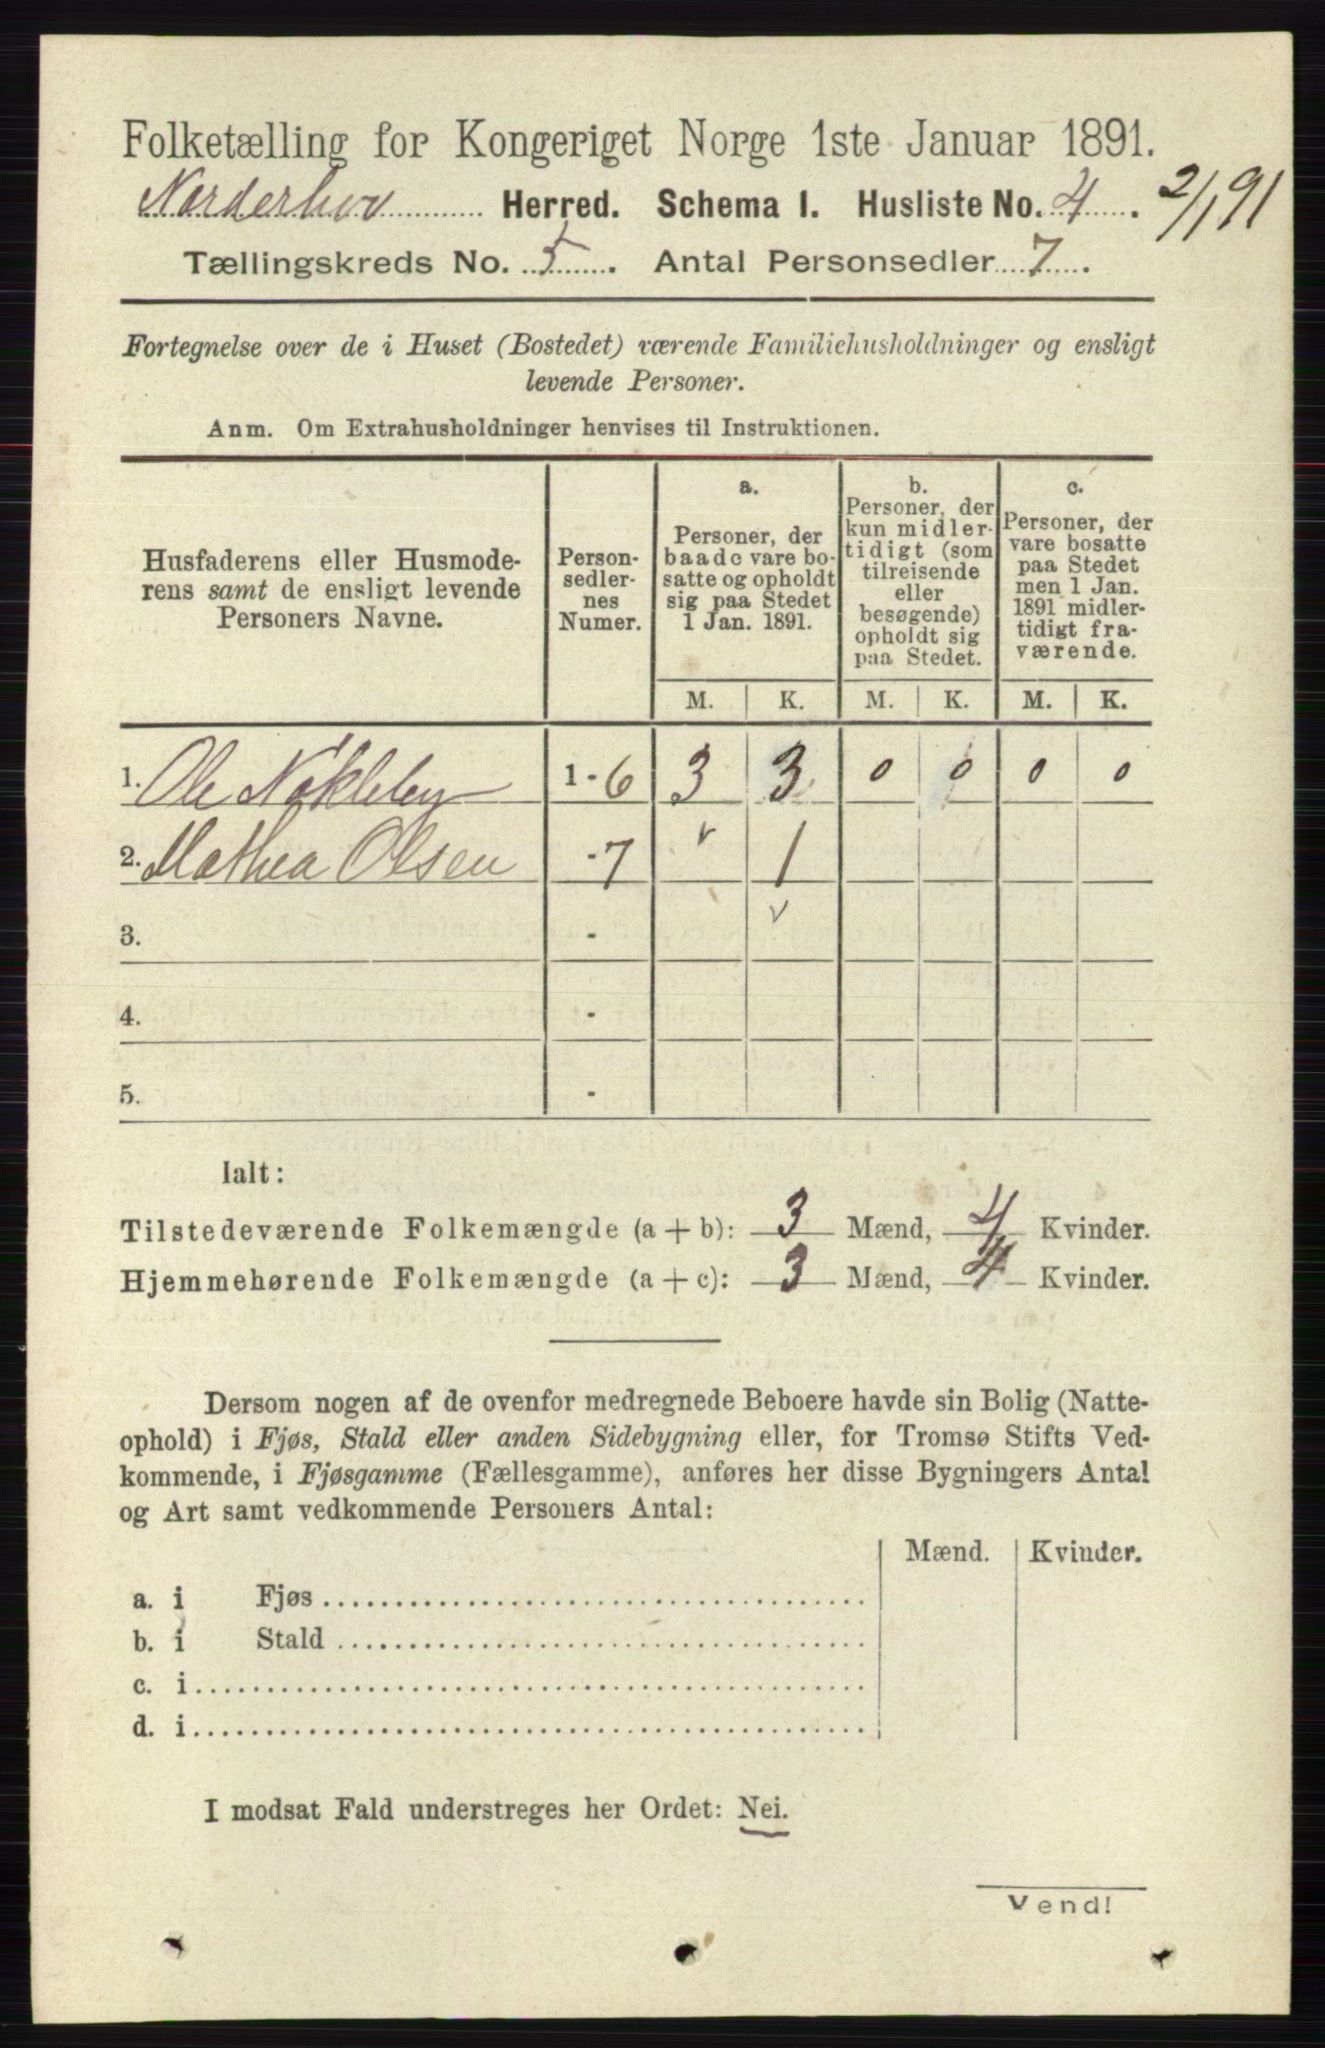 Folketælling for Kongeriget Norge 1ste Januar 1891.
Norderhov Herred. Schema I. Husliste No. 4. 2/1 91
Tællingskreds No. 5. Antal Personsedler 7.
Fortegnelse over de i Huset (Bostedet) værende Familiehusholdninger og ensligt
levende Personer.
Anm. Om Extrahusholdninger henvises til Instruktionen.
Husfaderens eller Husmode-
rens samt de ensligt levende
Personers Navne.
Person-
sedler-
nes
Numer.
a.
Personer, der
baade vare bo-
satte og opholdt
sig paa Stedet
1 Jan. 1891.
b.
Personer, der
kun midler-
tidigt (som
tilreisende
eller
besøgende)
opholdt sig
paa Stedet.
c.
Personer, der
vare bosatte
paa Stedet
men 1 Jan.
1891 midler-
tidigt fra-
værende.
M. K. M. K. M. K.
1. Ole Nökleby 1 - 6 3 3 0 0 0 0
2. Mathea Olsen - 7 v 1
3. - v
4. -
5. -
Ialt:
Tilstedeværende Folkemængde (a + b): 3 Mænd, 4 Kvinder.
Hjemmehørende Folkemængde (a + c): 3 Mænd, 4 Kvinder.
Dersom nogen af de ovenfor medregnede Beboere havde sin Bolig (Natte-
ophold) i Fjøs, Stald eller anden Sidebygning eller, for Tromsø Stifts Ved-
kommende, i Fjøsgamme (Fællesgamme), anføres her disse Bygningers Antal
og Art samt vedkommende Personers Antal:
Mænd. Kvinder.
a. i Fjøs
b. i Stald
c. i
d. i
I modsat Fald understreges her Ordet: Nei.
Vend!